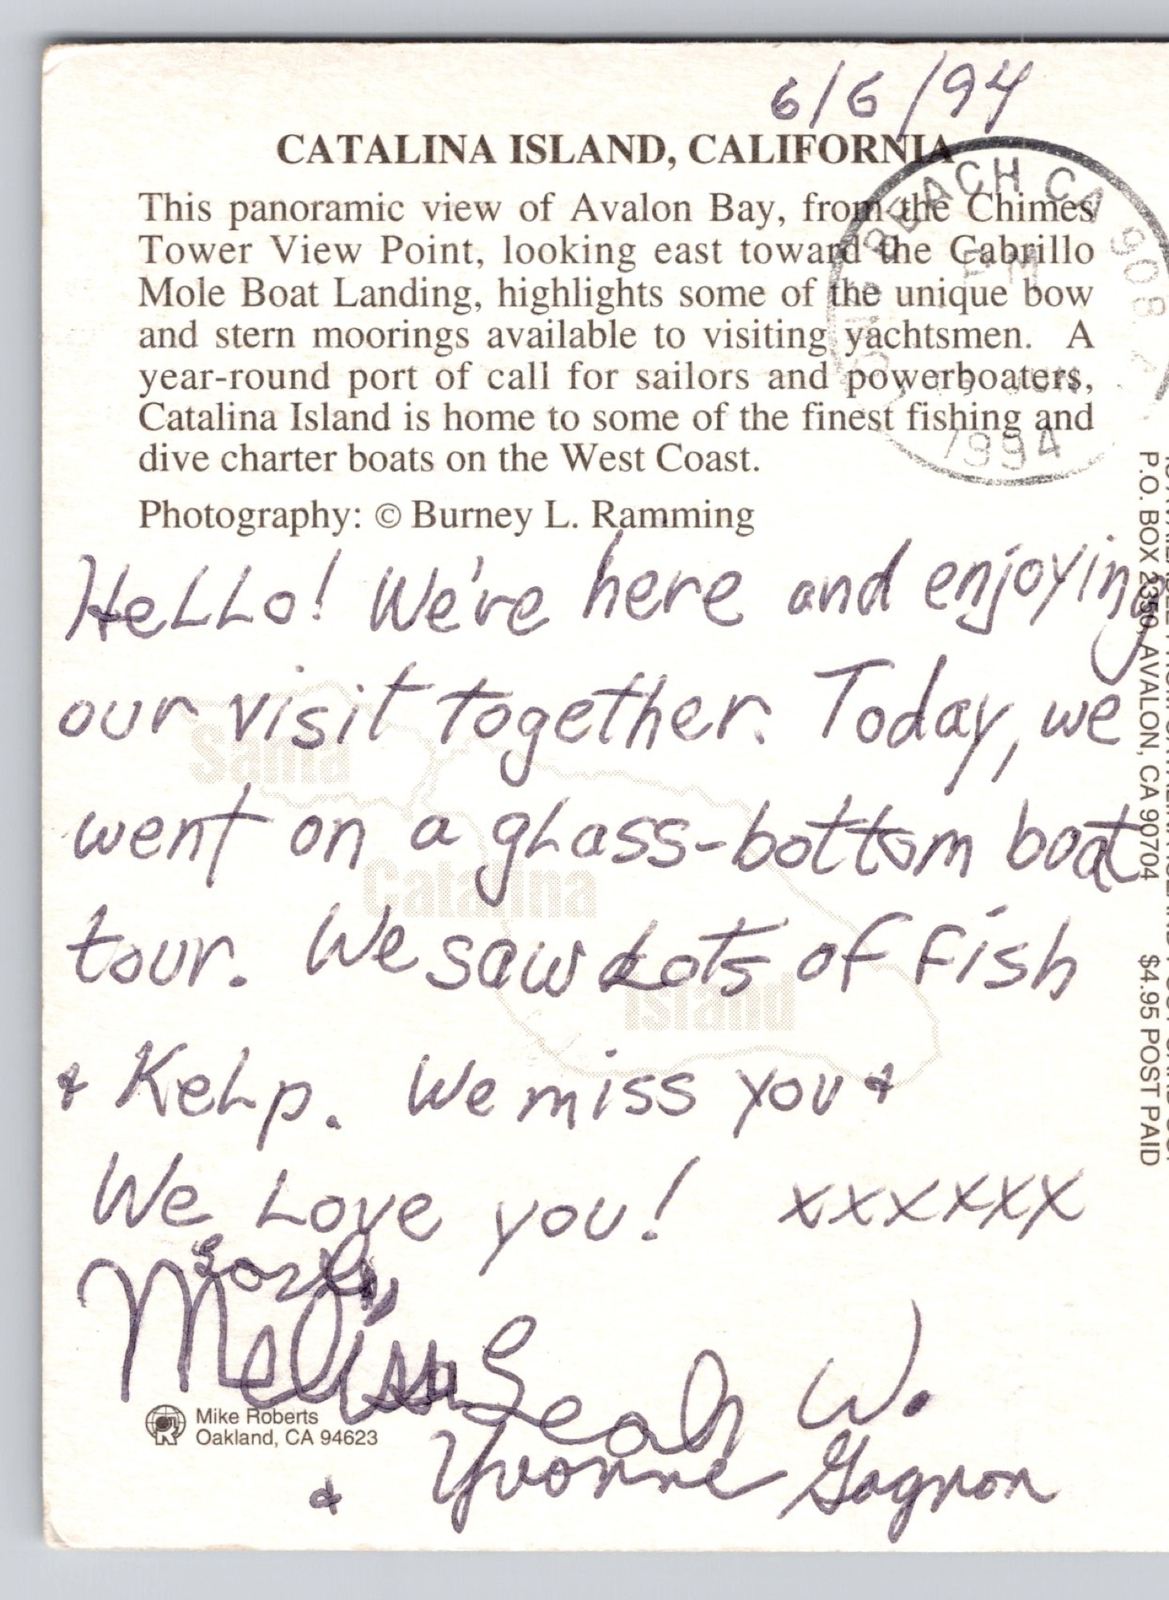 6/6/94
CATALINA ISLAND, CALIFORNIA
This panoramic view of Avalon Bay, from the Chimes
Tower View Point, looking east toward the Cabrillo
Mole Boat Landing, highlights some of the unique bow
and stern moorings available to visiting yachtsmen. A
year-round port of call for sailors and powerboaters,
Catalina Island is home to some of the finest fishing and
dive charter boats on the West Coast.
Photography: © Burney L. Ramming
BEACH CA 908
PM
1994
Hello! We're here and enjoying
our visit together. Today, we
went on a glass-bottom boat
tour. We saw Lots of fish
& Kelp. We miss you &
We Love you! xxxxxx
Melissa
Leah W.
& Yvonne Gagnon
Santa
Catalina
Island
Mike Roberts
Oakland, CA 94623
P.O. BOX 2350, AVALON, CA 90704 $4.95 POST PAID